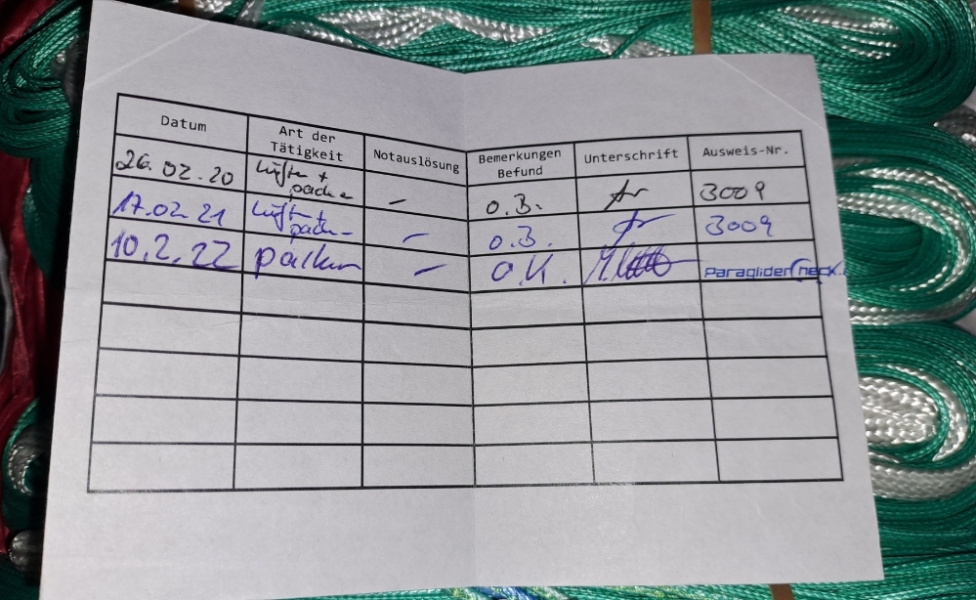 Datum Art der Tätigkeit Notauslösung Bemerkungen Befund Unterschrift Ausweis-Nr.
26.02.20 Lüften + packen – o.B. 3009
17.02.21 Lüften + packen – o.B. 3009
10.2.22 packen – O.K. ParagliderCheck.